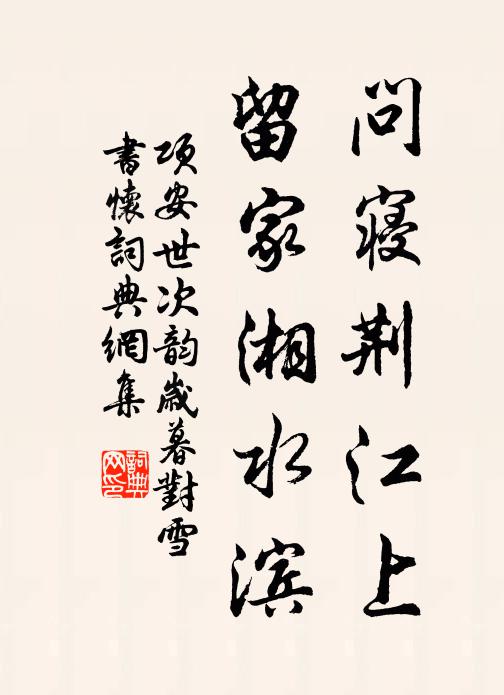 问寝荆江上
留家湘水滨
项安世次韵岁暮對雪
書懷詞典網集
詞典网印